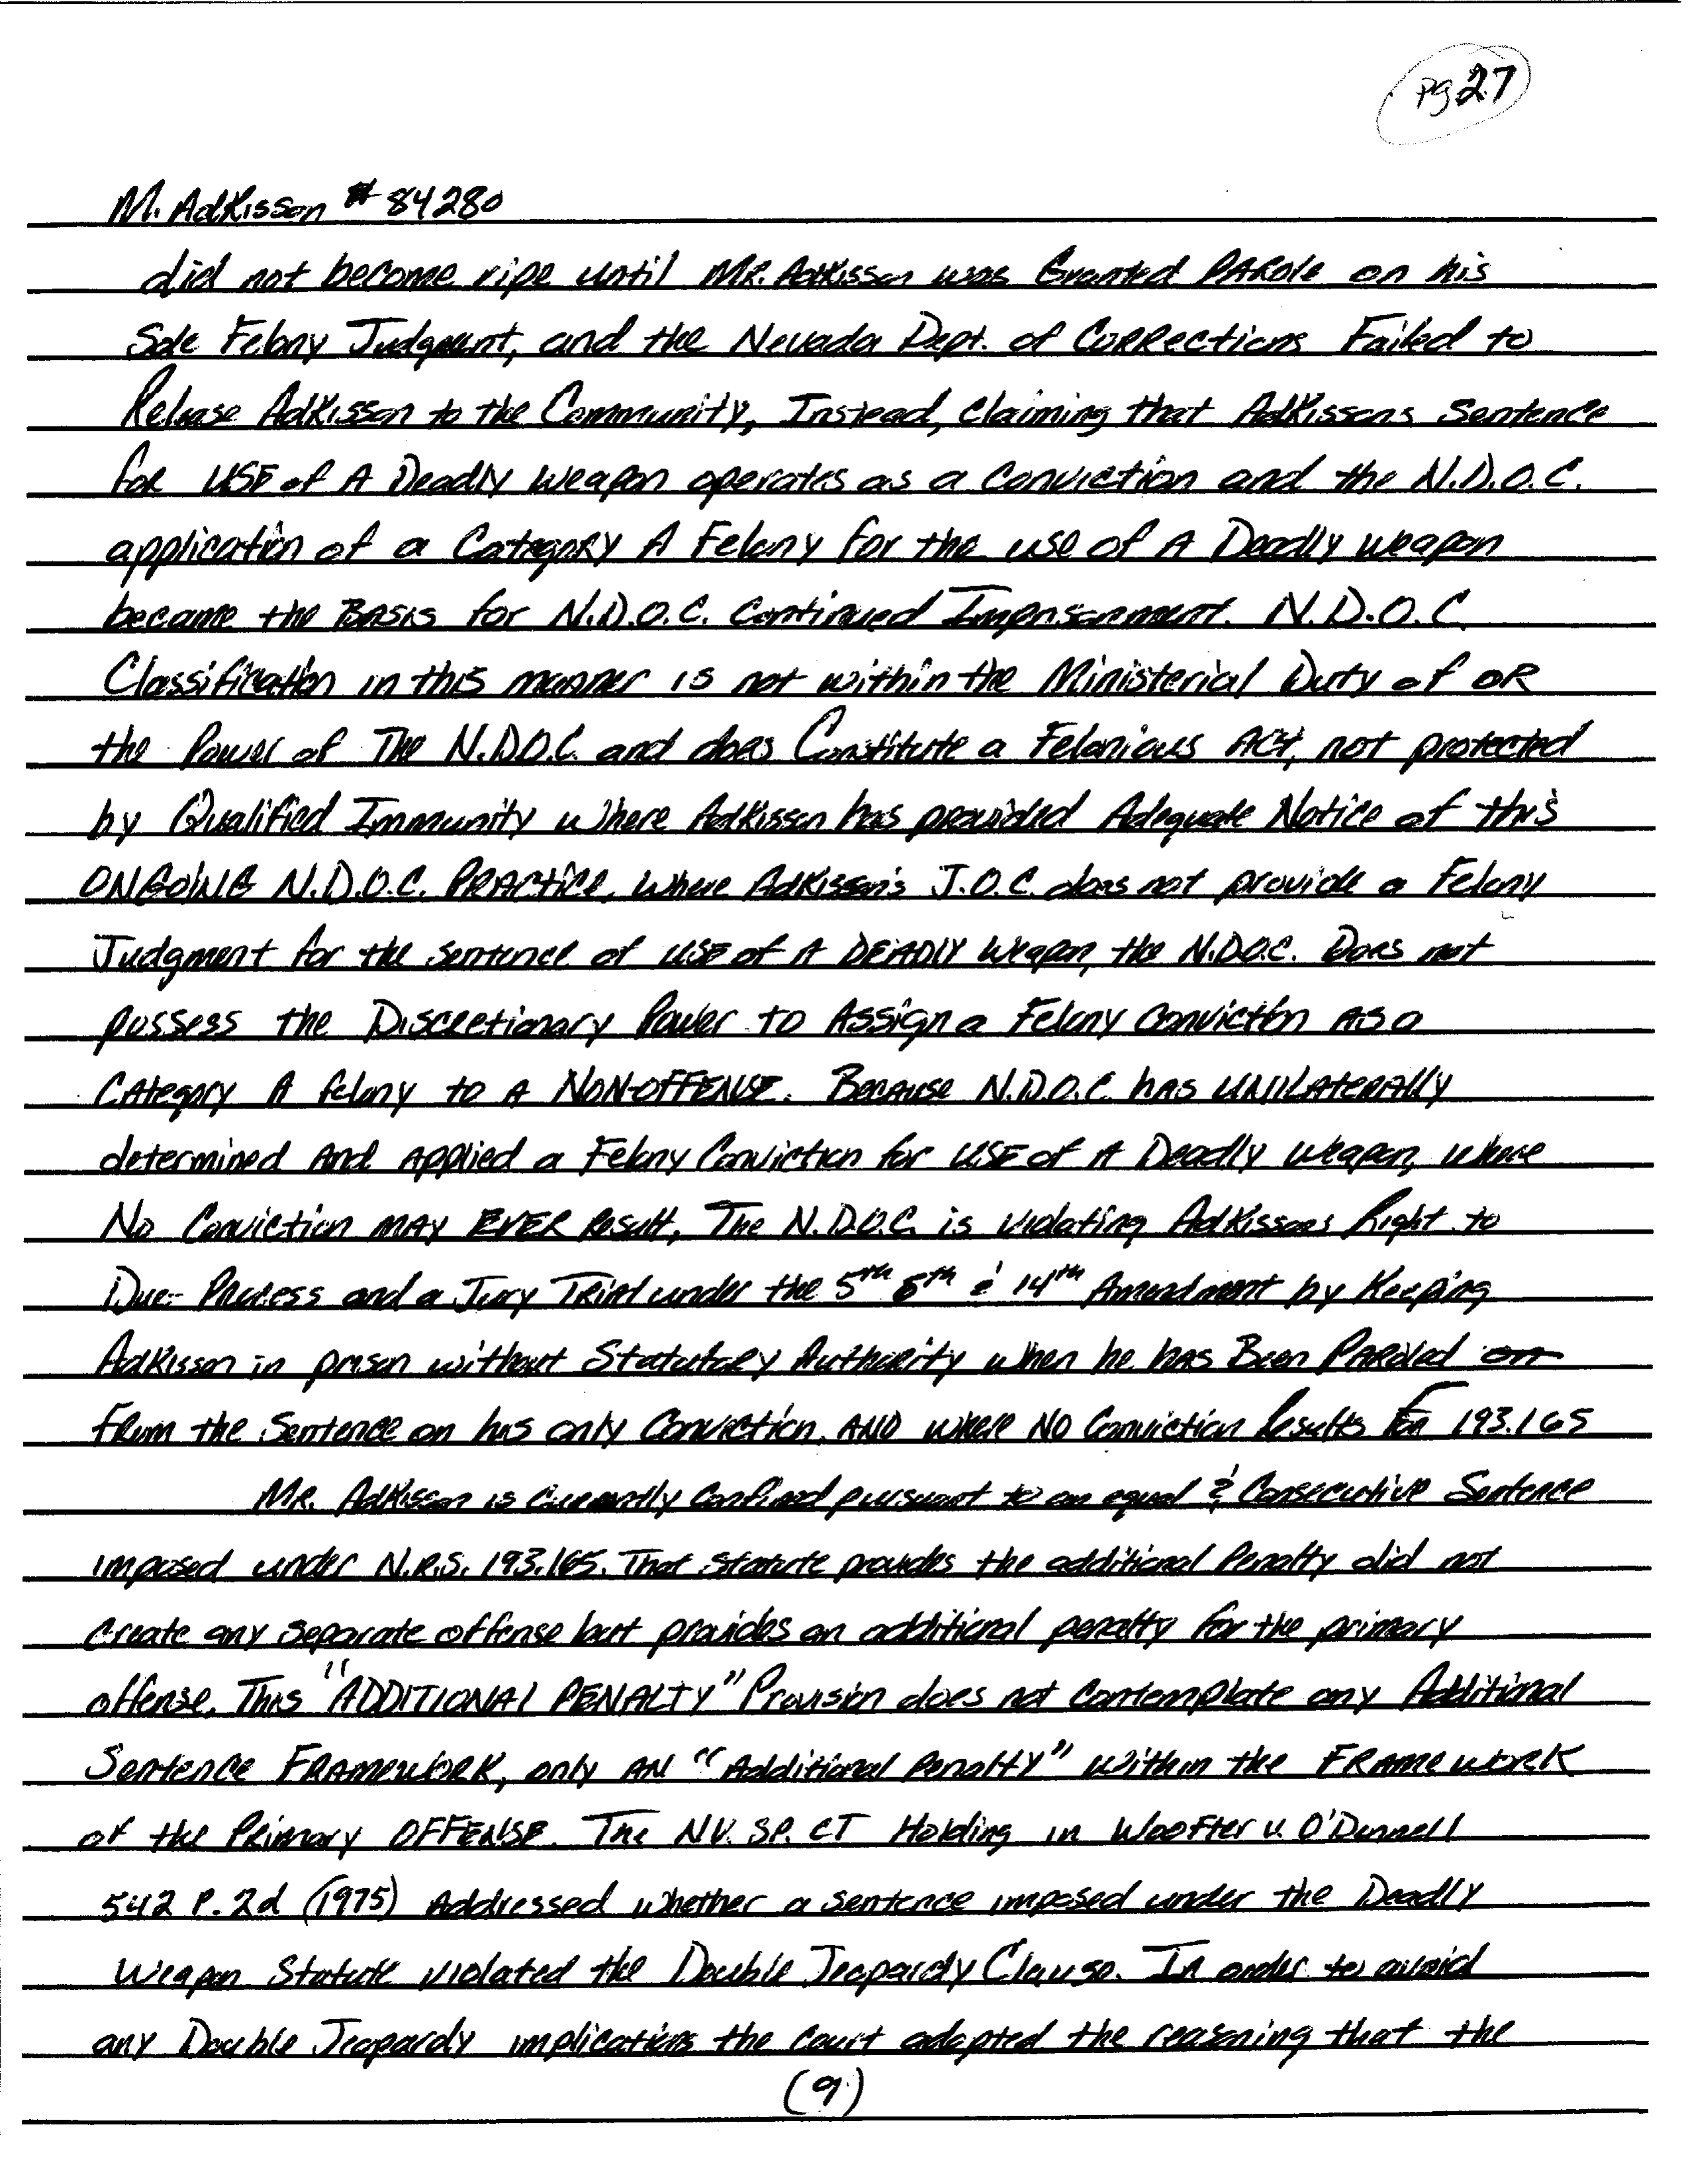 Pg 27
M. Adkisson # 84280
did not become ripe until MR. Adkisson was Granted PARole on his
Sole Felony Judgment, and the Nevada Dept. of CORRections Failed to
Release Adkisson to the Community, Instead, claiming that Adkissons Sentence
for USE of A Deadly Weapon operates as a Conviction and the N.D.O.C.
application of a Category A Felony for the use of A Deadly weapon
became the BASIS for N.D.O.C. Continued Imprisonment. N.D.O.C.
Classification in this manner is not within the Ministerial Duty of OR
the Power of The N.D.O.C. and does Constitute a Felonious ACt, not protected
by Qualified Immunity where Adkisson has provided Adequate Notice of this
ONGOING N.D.O.C. PRACtice, where Adkisson's J.O.C. does not provide a Felony
Judgment for the sentence of USE of A DEADLY Weapon, the N.D.O.C. Does not
possess the Discretionary Power to Assign a Felony Conviction AS a
CAtegory A felony to A NON-OFFENSE. Because N.D.O.C. hAS UNILATERAlly
determined And Applied a Felony Conviction for USE of A Deadly weapon, where
No Conviction MAY EVER Result, The N.D.O.C. is violating Adkissons Right to
Due- Process and a Jury TRial under the 5th 6th & 14th Amendment by Keeping
Adkisson in prison without StatutoRy Authority when he hAS Been PARoled on
from the Sentence on his only Conviction, AND where NO Conviction Results For 193.165
MR. Adkisson is Currently Confined pursuant to an equal & Consecutive Sentence
imposed under N.R.S. 193.165. That Statute provides the additional Penalty did not
Create any separate offense but provides an additional penalty for the primary
offense. This "ADDITIONAl PENALTY" Provision does not Contemplate any Additional
Sentence FRAMEWORK, only AN "Additional Penalty" within the FRAMEWORK
of the Primary OFFENSE. The NV. SP. CT Holding in Woofter v. O'Donnell
542 P. 2d (1975) Addressed whether a sentence imposed under the Deadly
Weapon Statute violated the Double Jeopardy Clause. In order to avoid
any Double Jeopardy implications the Court adopted the reasoning that the
(9)